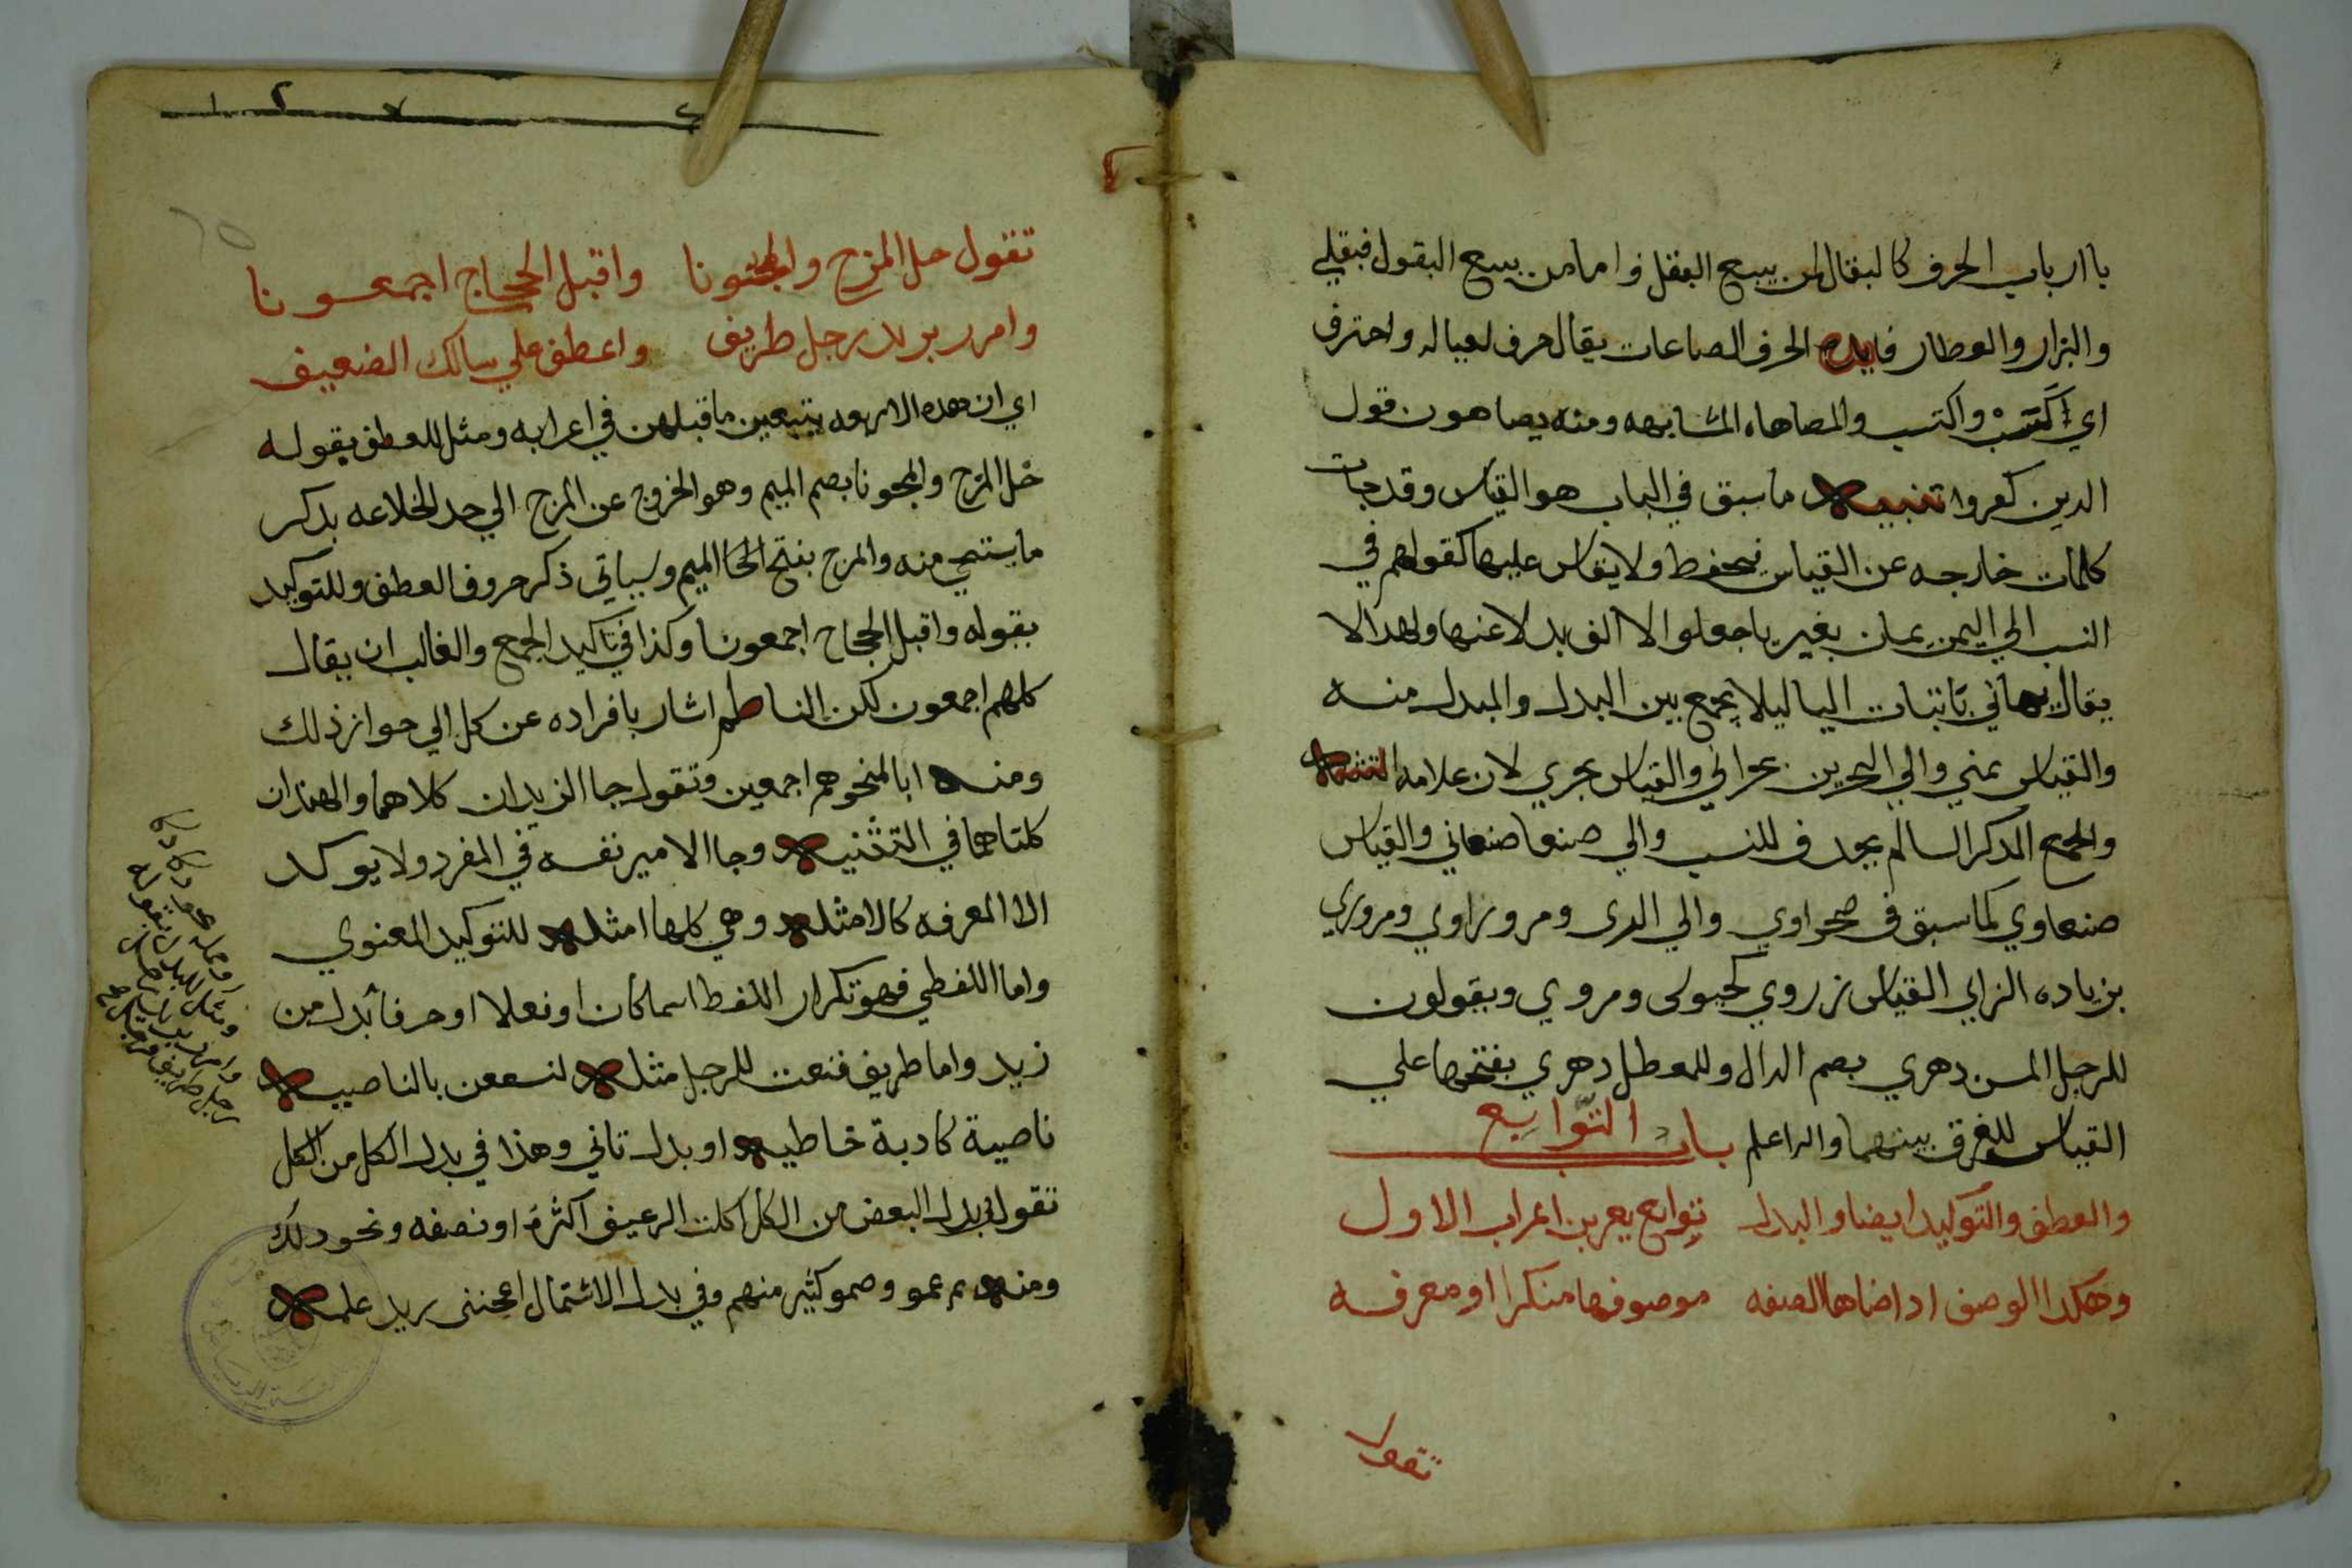 با ارباب الحرف كالبقال لمن يبيع البقل واما من يبيع البقول فبقلي
والبزار والعطار فايده الحرف الصناعات يقال حرف لعياله واحترف
اي كتسب واكتسب والمضاهاه المشابهه ومنه يضاهون قول
الذين كفروا تنبيه ما سبق في الباب هو القياس وقد جات
كلمات خارجه عن القياس تحفظ ولا يقاس عليها كقولهم في
النسب الي اليمن يمان بغير يا جعلوا الا الف بدلا عنها ولهذا لا
يقال يماني باثبات اليا ليلا يجمع بين البدل والمبدل منه
والقياس يمني والي البحرين بحراني والقياس بحري لان علامه التثنيه
والجمع المذكر السالم يحذف للنسب والي صنعا صنعاني والقياس
صنعاوي كما سبق في صحراوي والي الري ومرو رازي ومروزي
بزياده الزاي القياس ومروي ويقولون
للرجل المسن دهري بضم الدال وللمعطل دهري بفتحها علي
القياس للفرق بينهما والله اعلم باب التوابع
والعطف والتوكيد ايضا والبدل توابع يعربن اعراب الاول
وهكذا الوصف اذا ضاها الصفه موصوفها منكرا او معرفه
تقول
تقول خل المزح والمجونا واقبل الحجاج اجمعونا
وامرر بزيد رجل ظريف واعطف علي سالك الضعيف
اي ان هذه الاربعه يتبعن ما قبلهن في اعرابه ومثل للعطف بقوله
خل المزح والمجونا بضم الميم وهو الخروج عن المزح الي حد الخلاعه بذكر
ما يستحي منه والمزح بفتح الميم وسياتي ذكر حروف العطف وللتوكيد
بقوله واقبل الحجاج اجمعونا وكذا في تاكيد الجمع والغالب ان يقال
كلهم اجمعون لكن الناظم اشار بافراده عن كل الي جواز ذلك
ومنه انا لمنجوهم اجمعين وتقول جا الزيدان كلاهما والهندان
كلتاهما في التثنيه وجا الامير نفسه في المفرد ولا يوكد
الا المعرفه كالامثله وهي كلها امثله للتوكيد المعنوي
واما اللفظي فهو تكرار اللفظ اسما كان او فعلا او حرفا بدل من
زيد واما ظريف فنعت للرجل مثله لنسفعن بالناصيه
ناصية كاذبة خاطيه او بدل ثاني وهذا في بدل الكل من الكل
تقول في بدل البعض من الكل اكلت الرغيف اكثره او نصفه ونحو ذلك
ومنه ثم عمو وصمو كثير منهم وفي بدل الاشتمال اعجبني زيد علمه
ومثل للبدل بقوله
وامرر بزيد رجل